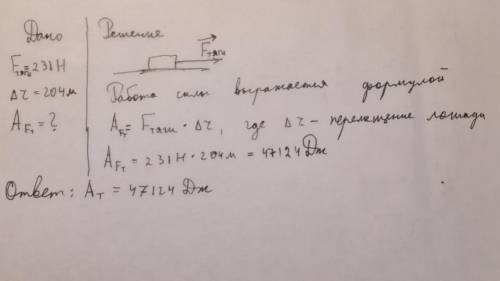 Дано
Fтяги = 231 Н
Δr = 204 м
A_Fт = ?
Решение
Fтяги
Работа силы выражается формулой
A_Fт = Fтяги · Δr, где Δr – перемещение лошади
A_Fт = 231 Н · 204 м = 47124 Дж
Ответ: Aт = 47124 Дж